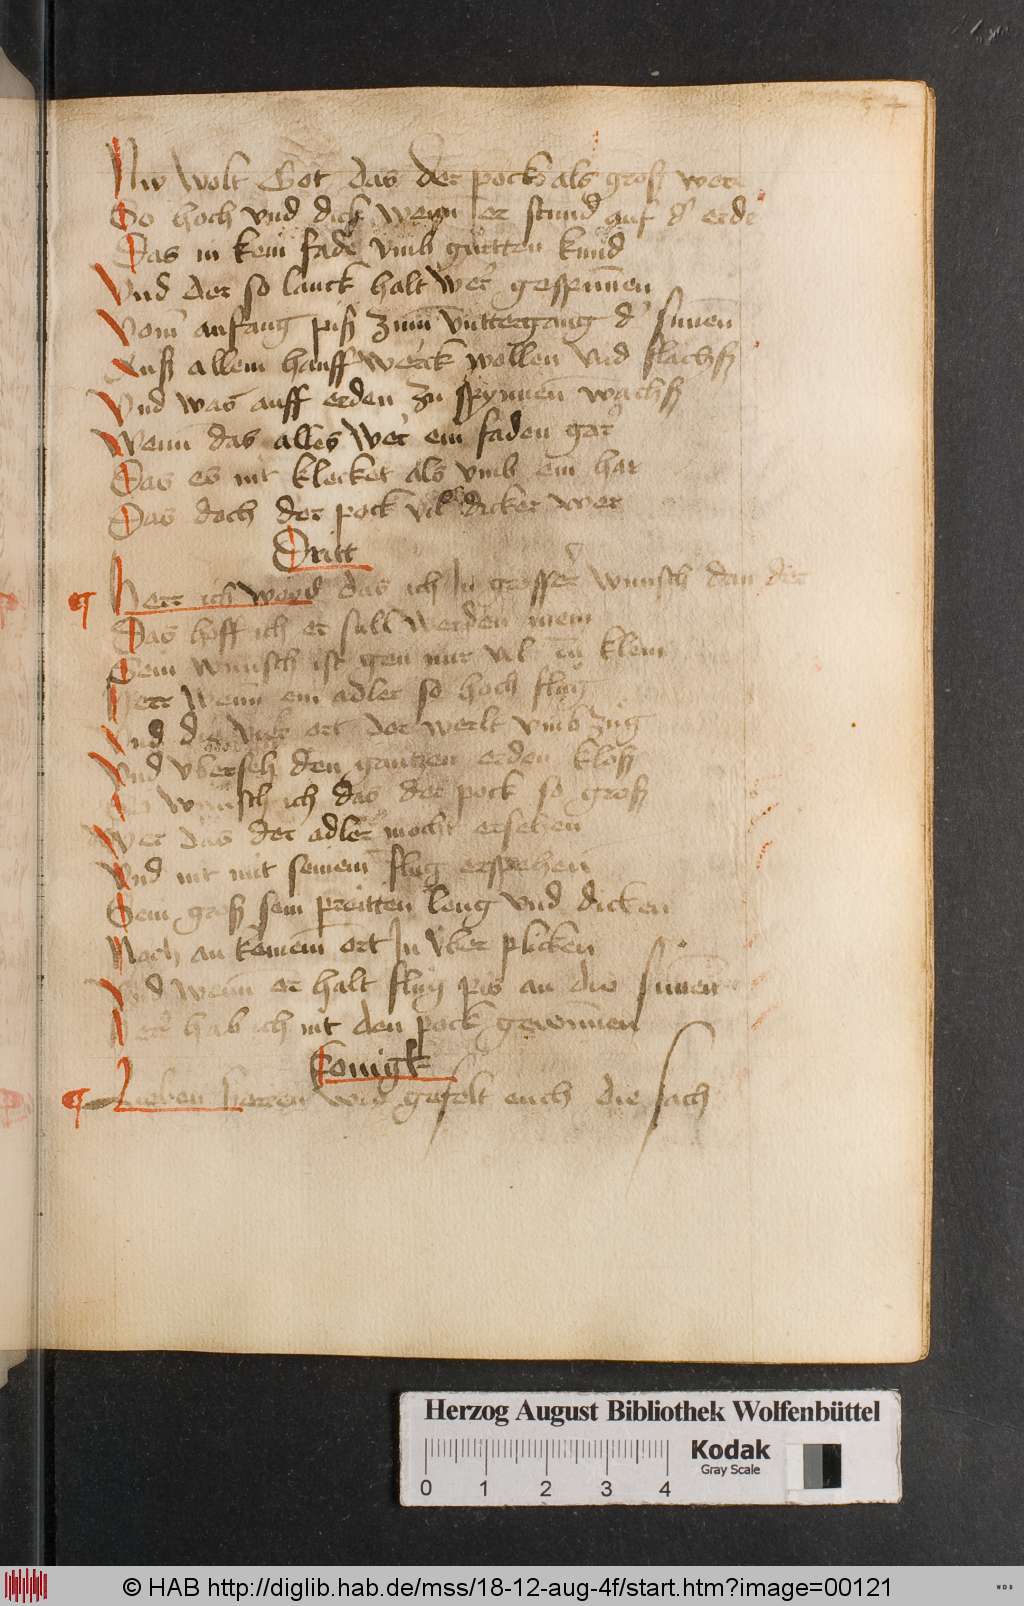 54
Nw wolt Got das der pock als groß wer
So hoch vnd dick wenn er stund auf d' erde
Das in kein fade vmb gurtten kund
Vnd der so lanck halt wer gespunnen
Vom anfang piß zum vnttergang d' sunnen
Auß allem hanff werck wollen vnd flachß
Vnd was auff erden zu spynnen wachß
Wenn das alles wer ein faden gar
Das es nit klecket als vmb ein har
Das doch der pock vil dicker wer
Dritt
Herr ich word das ich In grosser wunsch dan der
Das hoff ich er sull werden mein
Sein wunsch ist gen mir vil zu klein
Herr wenn ein adler so hoch flug
Vnd die vier ort der werlt vmb zug
Vnd vberseh den gantzen erden kloß
So wunsch ich das der pock so groß
Wer das der adler mocht ersehen
Vnd nit mit seinem flug erspehen
Sein groß sein preitten leng vnd dicken
Noch an keinem ort In vber plicken
Vnd wenn er halt flug pis an die sunnen
Herr hab ich nit den pock gewunnen
Konigk
Lieben herren wie gefelt euch die sach
Herzog August Bibliothek Wolfenbüttel
Kodak
Gray Scale
0 1 2 3 4
© HAB http://diglib.hab.de/mss/18-12-aug-4f/start.htm?image=00121